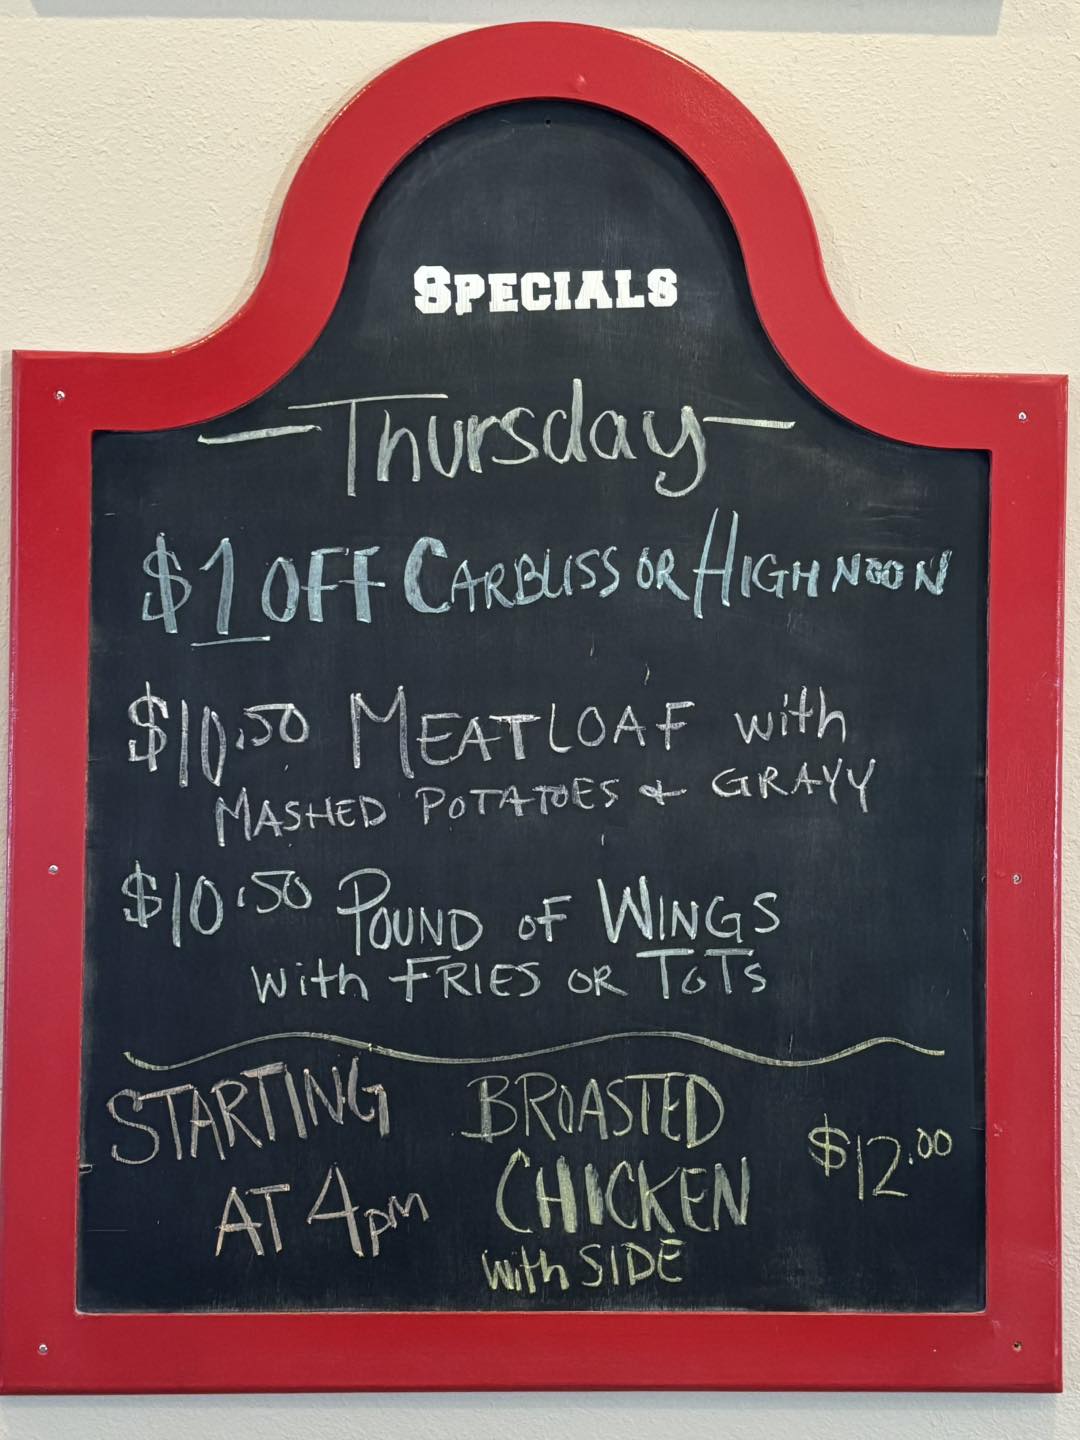 SPECIALS
- Thursday -
$1 OFF CARBLISS OR HIGH NOON
$10.50 MEATLOAF with
MASHED POTATOES & GRAVY
$10.50 POUND OF WINGS
with FRIES OR TOTS
STARTING AT 4pm
BROASTED CHICKEN with SIDE
$12.00